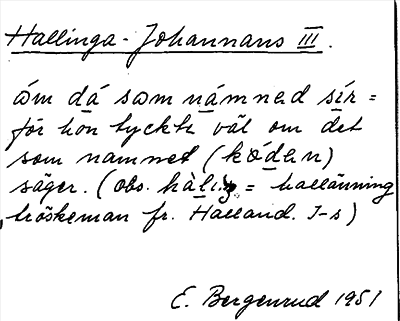 Hallinga-Johannans III.
óm dá sam námned sír =
för hon tyckte väl om det
som namnet (kódan)
säger. (obs. = hallänning
fr. Halland. J-s)
E. Bergenrud 1951